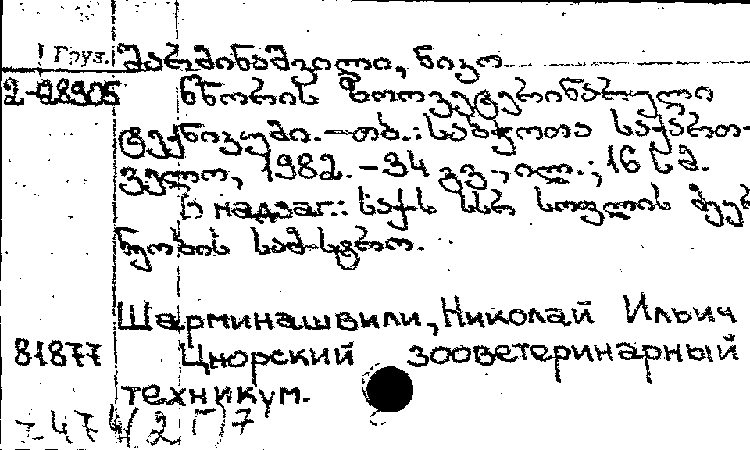 Груз. შარმინაშვილი, ნიკო
2-28905 წნორის ზოოვეტერინარული
ტექნიკუმი. — თბ.: საბჭოთა საქართ-
ველო, 1982. – 34 გვ., ილ.; 16 სმ.
В надзаг.: საქ. სსრ სოფლის მეურ
ნეობის სამ-სტრო.
Шарминашвили, Николай Ильич
81877 Цнорский зооветеринарный
техникум.